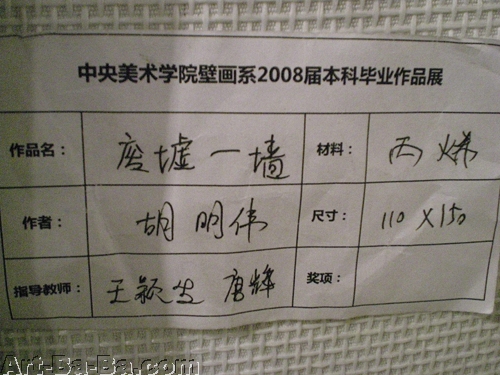 中央美术学院壁画系2008届本科毕业作品展
作品名： 废墟一墙 材料： 丙烯
作者： 胡明伟 尺寸： 110 X 150
指导教师： 王颖生 唐辉 奖项：
Art-Ba-Ba.com